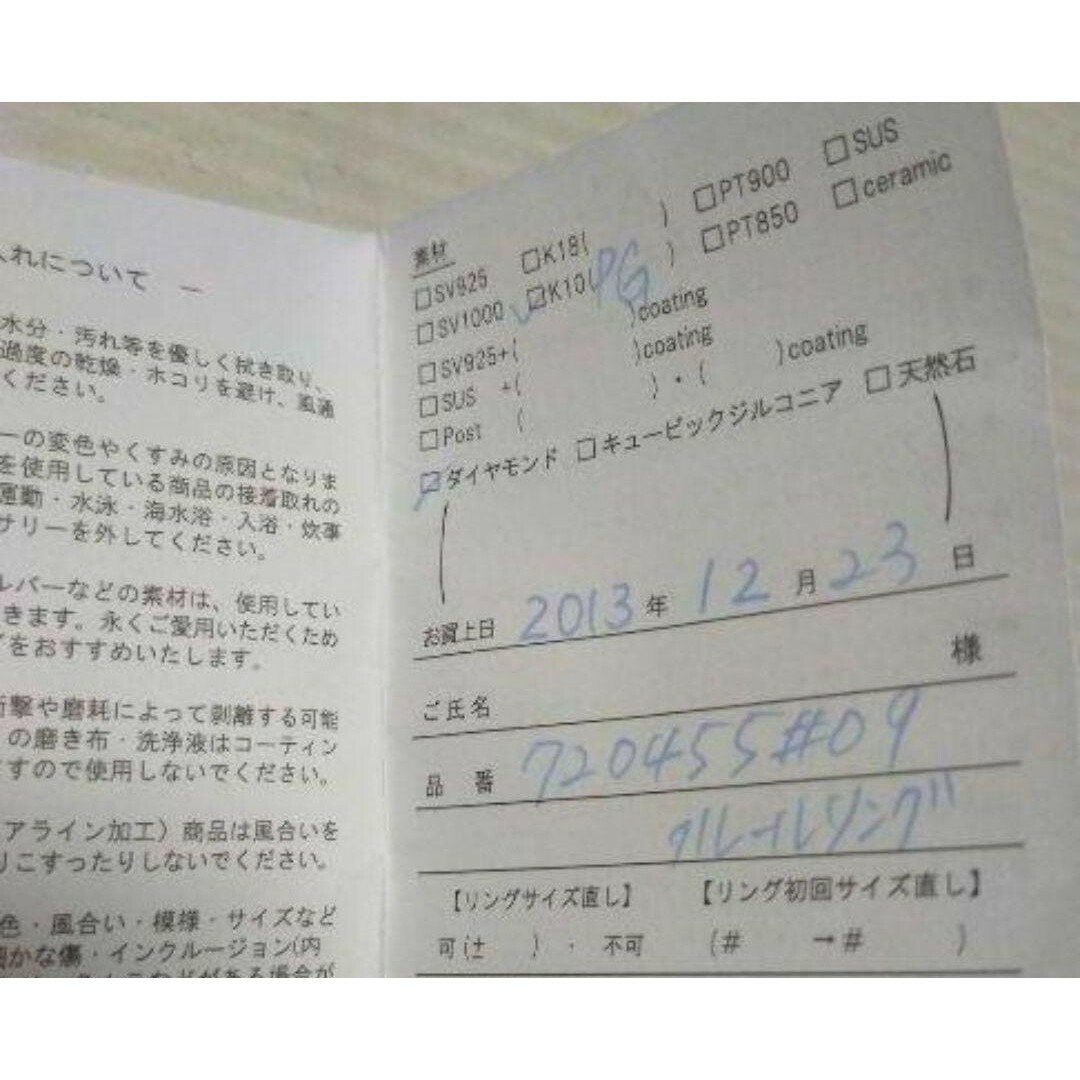 入れについて ー
水分・汚れ等を優しく拭き取り、
過度の乾燥・ホコリを避け、風通
ください。
ーの変色やくすみの原因となりま
を使用している商品の接着取れの
運動・水泳・海水浴・入浴・炊事
サリーを外してください。
ルバーなどの素材は、使用してい
きます。永くご愛用いただくため
をおすすめいたします。
衝撃や磨耗によって剥離する可能
の磨き布・洗浄液はコーティン
ますので使用しないでください。
アライン加工）商品は風合いを
りこすったりしないでください。
色・風合い・模様・サイズなど
細かな傷・インクルージョン(内
などがある場合が
素材
□SV925 □K18( ) □PT900 □SUS
□SV1000 ☑K10(PG ) □PT850 □ceramic
□SV925+( )coating
□SUS +( )coating
□Post ( )・( )coating
☑ダイヤモンド □キュービックジルコニア □天然石
( )
お買上日 2013年 12月 23日
ご氏名 様
品番 720455#09
リング
【リングサイズ直し】 【リング初回サイズ直し】
可(± )・不可 (# →# )